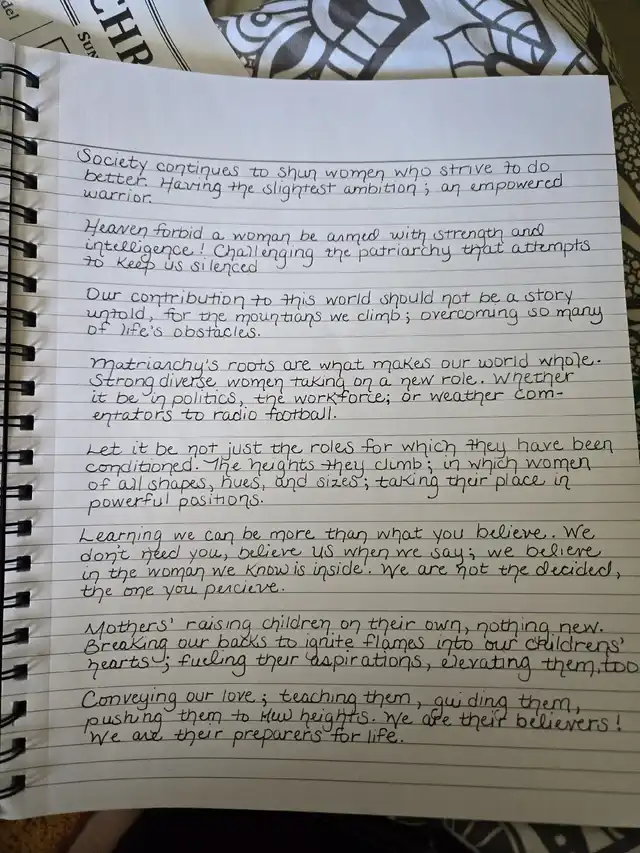 del
CHR
SUN
Society continues to shun women who strive to do
better. Having the slightest ambition; an empowered
warrior.
Heaven forbid a woman be armed with strength and
intelligence! Challenging the patriarchy that attempts
to keep us silenced
Our contribution to this world should not be a story
untold, for the mountians we climb; overcoming so many
of life's obstacles.
Matriarchy's roots are what makes our world whole.
Strong diverse women taking on a new role. Whether
it be in politics, the workforce; or weather com-
entators to radio football.
Let it be not just the roles for which they have been
conditioned. The heights they climb; in which women
of all shapes, hues, and sizes; taking their place in
powerful positions.
Learning we can be more than what you believe. We
don't need you, believe us when we say; we believe
in the woman we know is inside. We are not the decided,
the one you percieve.
Mothers' raising children on their own, nothing new.
Breaking our backs to ignite flames into our childrens'
hearts; fueling their aspirations, elevating them, too
Conveying our love; teaching them, guiding them,
pushing them to new heights. We are their believers!
We are their preparers for life.